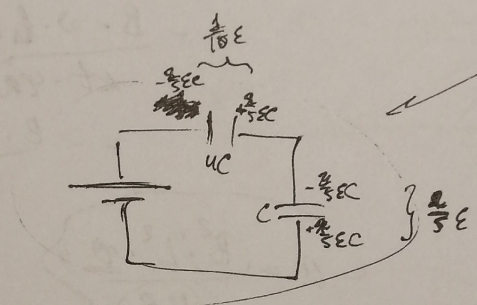 1/10 ε
-2/5 εC
+2/5 εC
4C
-2/5 εC
C
2/5 ε
+2/5 εC